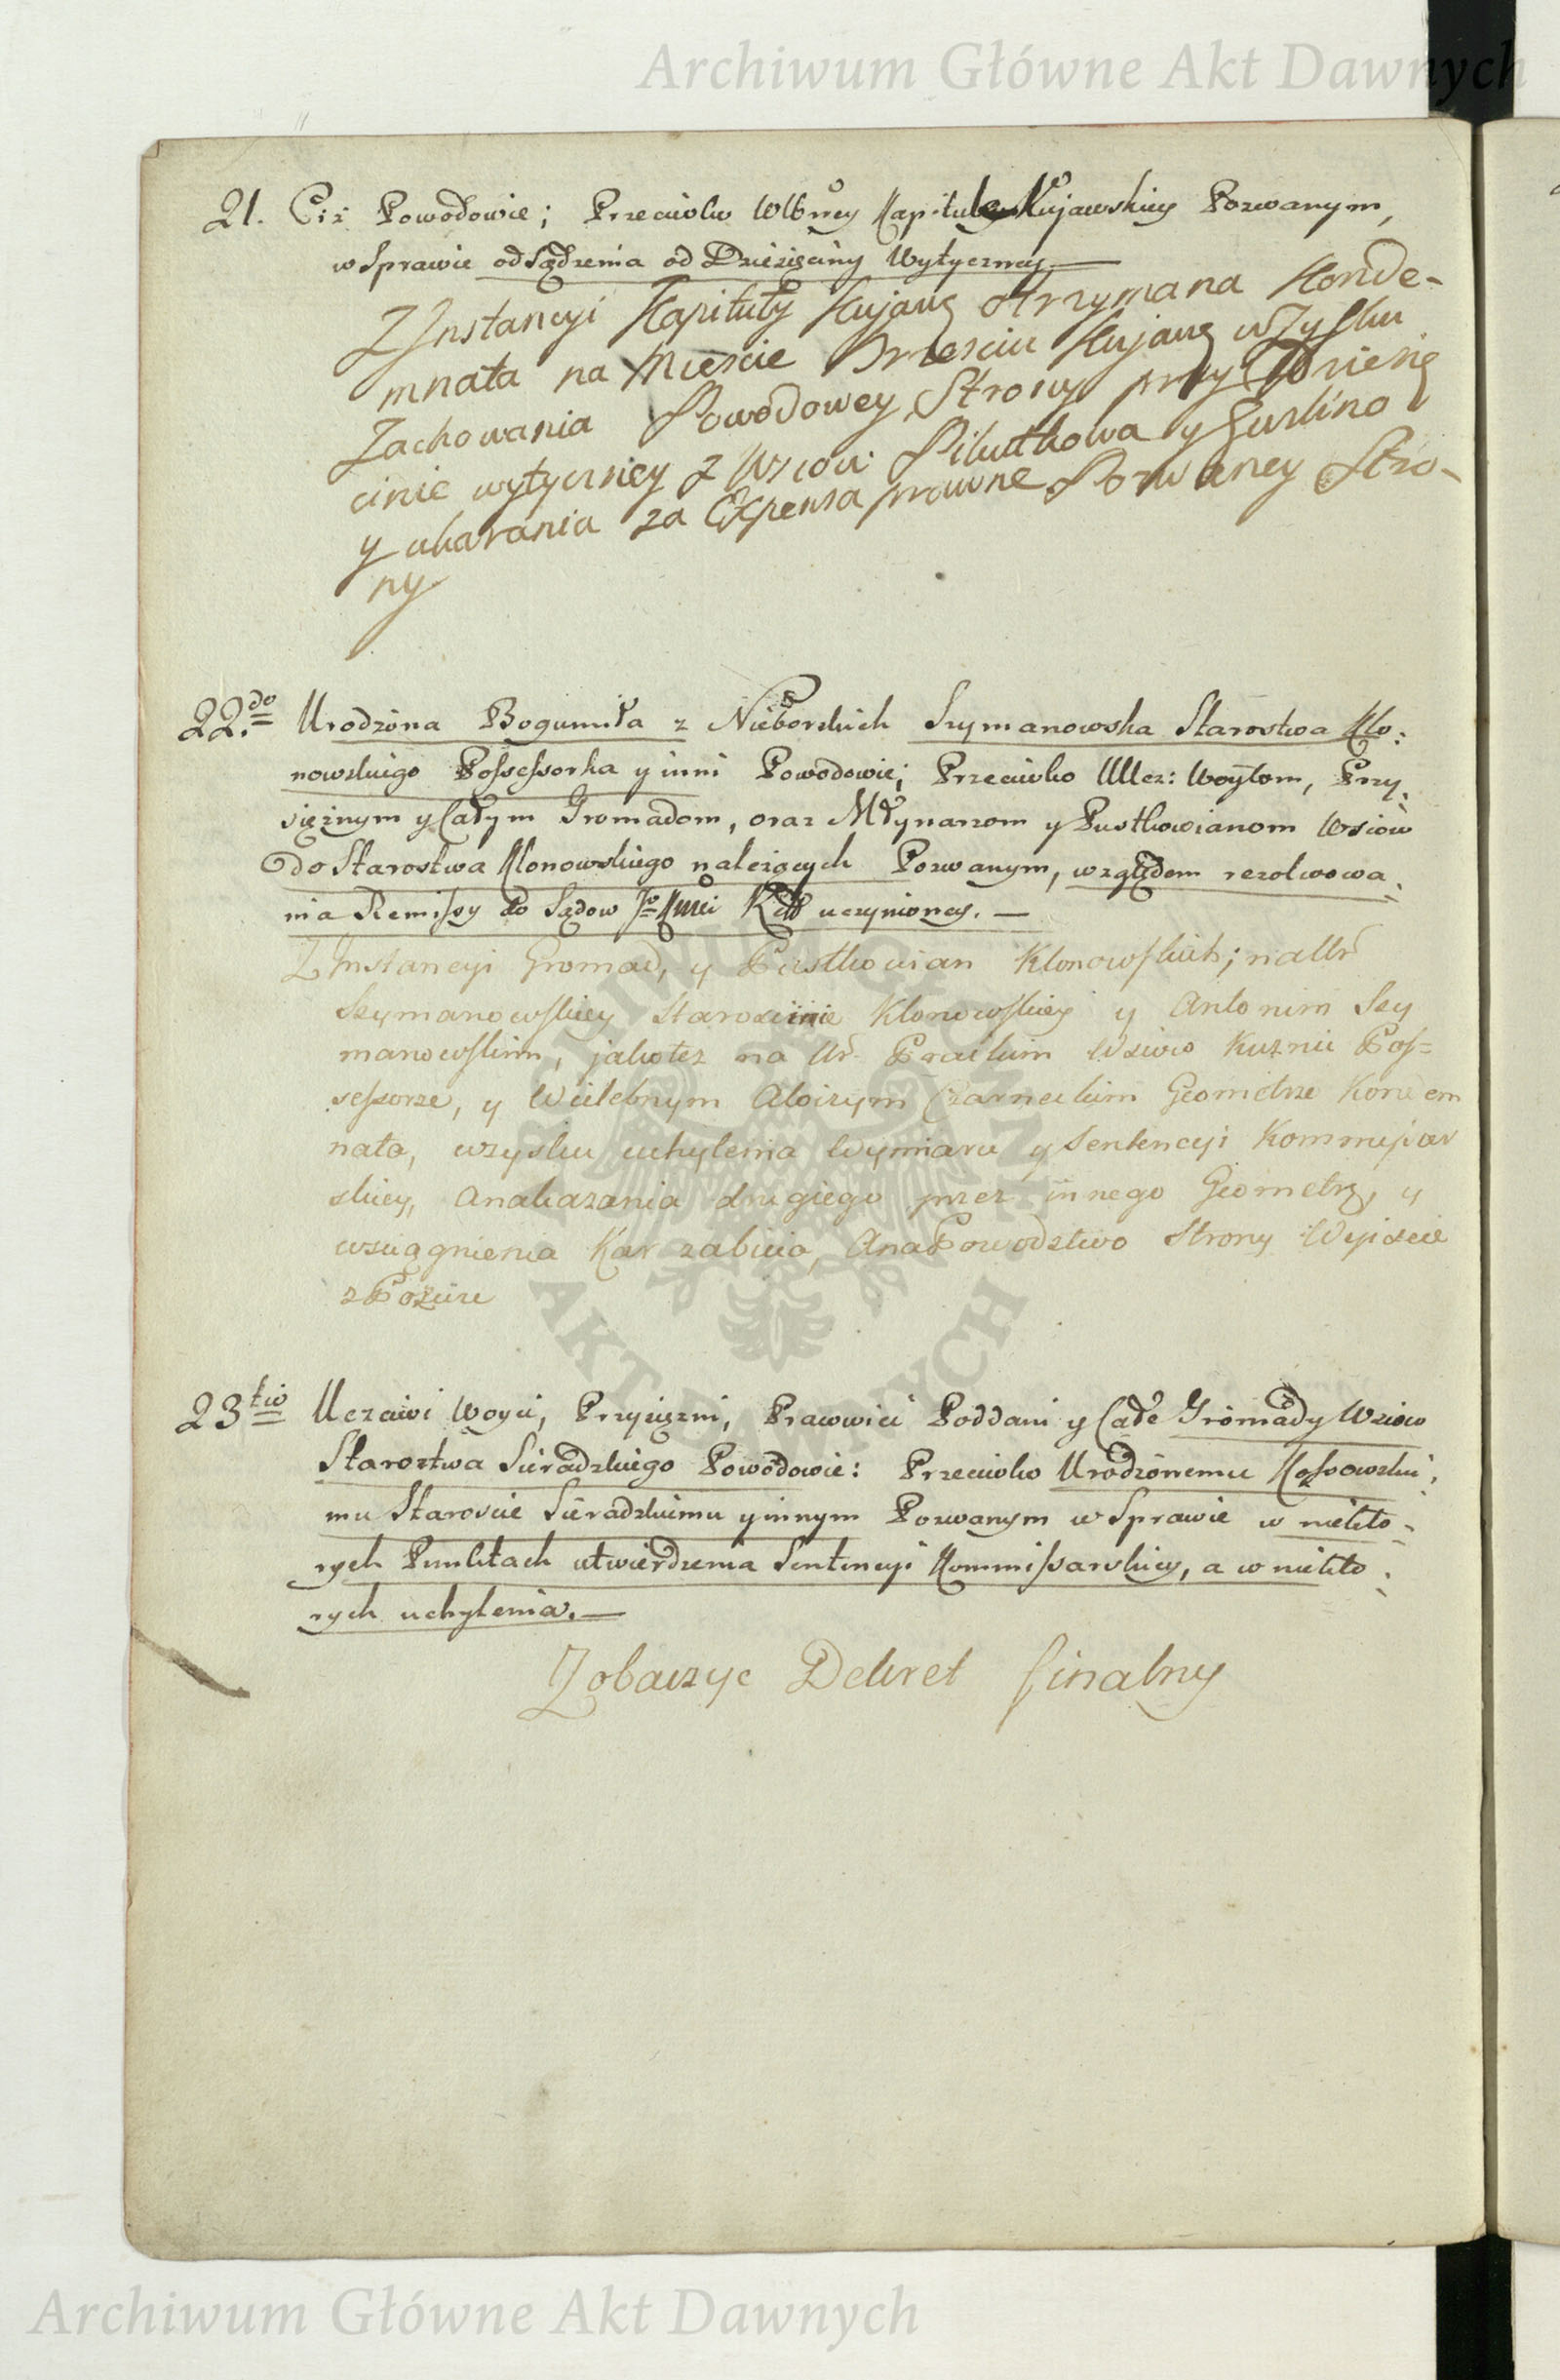 Archiwum Główne Akt Dawnych
21. Ciż Powodowie; Przeciwko Wlbney Kapitule Kujawskiey Pozwanym,
w Sprawie odsądzenia od Dziesięciny Wytyczney.—
Z Instancyi Kapituły Kujaws otrzymana Konde-
mnata na Miescie Brzesciu Kujaws w zysku
Zachowania Powodowey Strony przy Dziesię
cinie wytyczney z Wsiow y
y ukarania za Expensa prawne Pozwaney Stro-
ny
22.do Urodzona Bogumiła z Nieborskich Szymanowska Starostwa Klo:
nowskiego Possessorka y inni Powodowie; Przeciwko UUcz: Woytom, Przy.
siężnym y Całym Gromadom, oraz Młynarzom y Pustkowianom Wsiów
do Starostwa Klonowskiego należących Pozwanym, względem rezolwowa.
nia Remissy do Sądow Jo Kmci uczynioney. —
Z Instancyi Gromad, y Pustkowian Klonowskich; na Ur
Szymanowskiey Starościnie Klonowskiey y Antonim Szy
manowskim, jakotez na Ur. Wsiow Kuznic Pos=
sessorze, y Wielebnym Aloizym Czarneckim Geometrze Kondem
nata, w zysku uchylenia Wymiaru y Sentencyi Kommissar
skiey, A nakazania drugiego przez innego Geometrę, y
wsciągnienia Kar zabicia, A na Powodztwo Strony Wyiście
z Pozwu
23tio Uczciwi Woyci, Przysiężni, Prawowici Poddani y Całe Gromady Wsiow
Starostwa Sieradzkiego Powodowie: Przeciwko Urodzonemu Kossowski.
mu Staroscie Sieradzkiemu y innym Pozwanym w Sprawie w niekto-
rych Punktach utwierdzenia Sentencyi Kommissarskiey, a w niekto.
rych uchylenia.—
Zobaczyc Dekret finalny
ARCHIWUM GŁÓWNE AKT DAWNYCH
Archiwum Główne Akt Dawnych